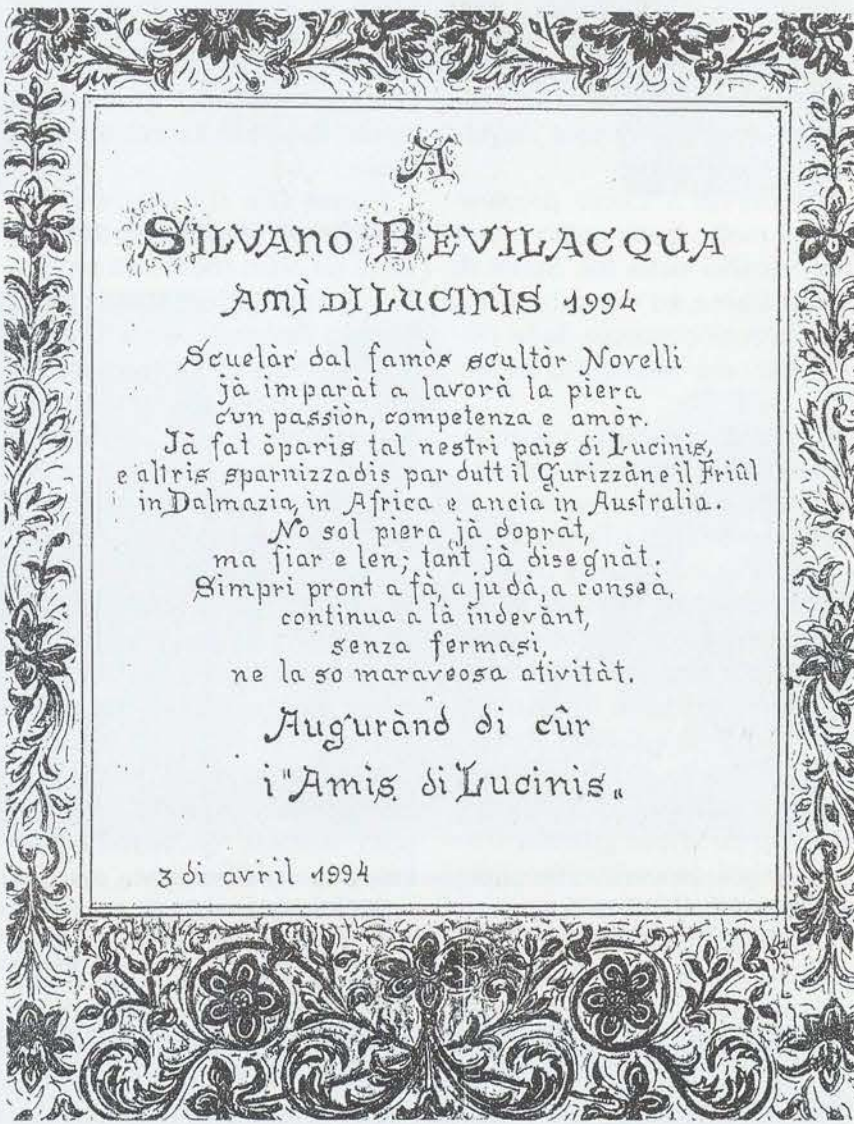 A
SILVANO BEVILACQUA
AMÌ DI LUCINIS 1994
Scuelàr dal famòs scultòr Novelli
jà imparàt a lavorà la piera
cun passiòn, competenza e amòr.
Jà fat òparis tal nestri pais di Lucinis,
e altris sparnizzadis par dutt il Gurizzàn e il Friûl
in Dalmazia, in Africa e ancia in Australia.
No sol piera jà dopràt,
ma fiar e len; tant jà disegnàt.
Simpri pront a fà, a judà, a conseà,
continua a là indevànt,
senza fermasi,
ne la so maraveosa ativitàt.
Augurànd di cûr
i "Amis di Lucinis„
3 di avril 1994